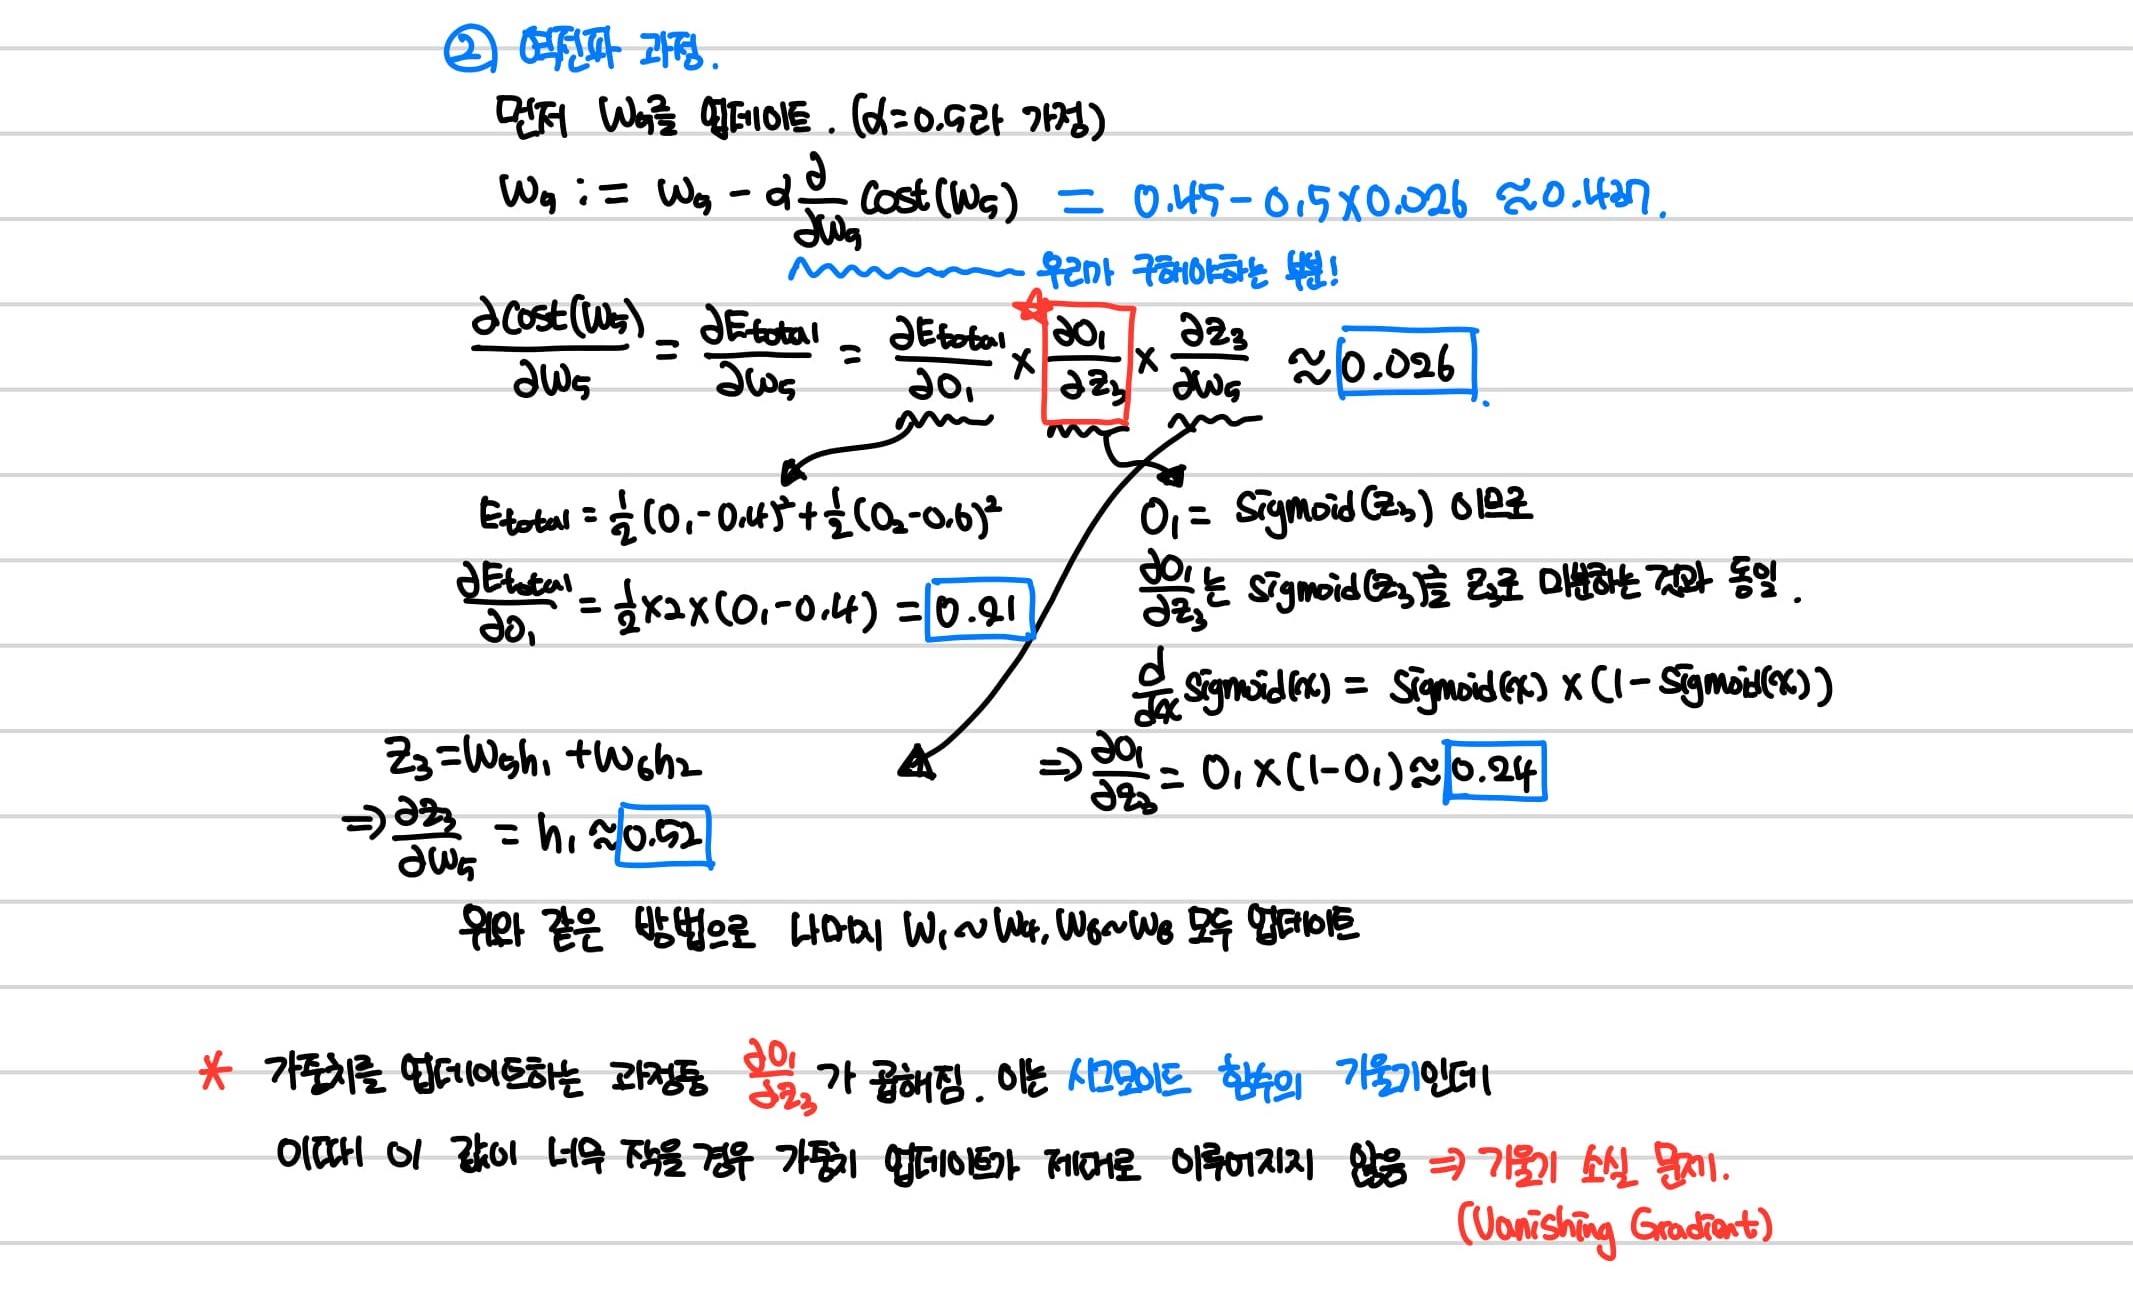 ② 역전파 과정.
먼저 W₅를 업데이트. (α=0.5라 가정)
W₅ := W₅ - α ∂/∂W₅ Cost(W₅) = 0.45 - 0.5×0.026 ≈ 0.437.
우리가 구해야하는 부분!
∂Cost(W₅)/∂W₅ = ∂Etotal/∂W₅ = ∂Etotal/∂O₁ × ∂O₁/∂Z₃ × ∂Z₃/∂W₅ ≈ 0.026.
Etotal = 1/2 (O₁-0.4)² + 1/2 (O₂-0.6)²
∂Etotal/∂O₁ = 1/2 ×2×(O₁-0.4) = 0.21
O₁ = Sigmoid(Z₃) 이므로
∂O₁/∂Z₃는 Sigmoid(Z₃)를 Z₃로 미분하는 것과 동일.
d/dx Sigmoid(x) = Sigmoid(x) × (1-Sigmoid(x))
⇒ ∂O₁/∂Z₃ = O₁ × (1-O₁) ≈ 0.24
Z₃ = W₅h₁ + W₆h₂
⇒ ∂Z₃/∂W₅ = h₁ ≈ 0.52
위와 같은 방법으로 나머지 W₁~W₄, W₆~W₈ 모두 업데이트
* 가중치를 업데이트하는 과정중 ∂O₁/∂Z₃ 가 곱해짐. 이는 시그모이드 함수의 기울기인데
이때 이 값이 너무 작을 경우 가중치 업데이트가 제대로 이루어지지 않음 ⇒ 기울기 소실 문제.
(Vanishing Gradient)